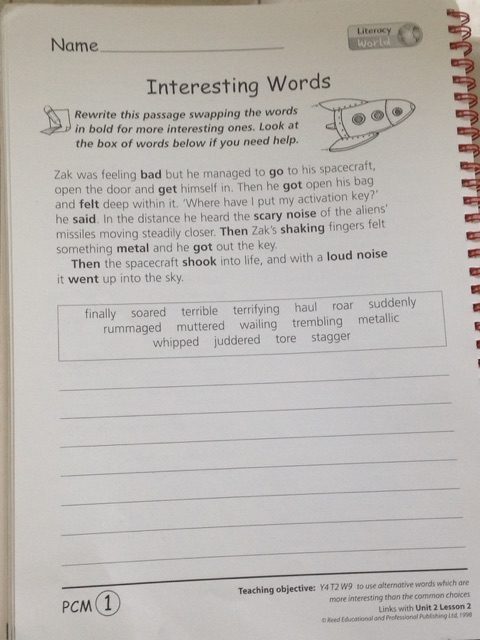 Name
Literacy
World
Interesting Words
Rewrite this passage swapping the words
in bold for more interesting ones. Look at
the box of words below if you need help.
Zak was feeling bad but he managed to go to his spacecraft,
open the door and get himself in. Then he got open his bag
and felt deep within it. ‘Where have I put my activation key?’
he said. In the distance he heard the scary noise of the aliens’
missiles moving steadily closer. Then Zak’s shaking fingers felt
something metal and he got out the key.
Then the spacecraft shook into life, and with a loud noise
it went up into the sky.
finally soared terrible terrifying haul roar suddenly
rummaged muttered wailing trembling metallic
whipped juddered tore stagger
PCM 1
Teaching objective: Y4 T2 W9 to use alternative words which are
more interesting than the common choices
Links with Unit 2 Lesson 2
© Reed Educational and Professional Publishing Ltd, 1998